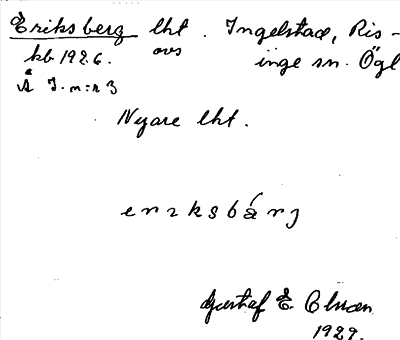 Eriksberg lht. Ingelstad, Ris-
kb 1926. avs inge sn. Ögl
Å J. m:r 3
Nyare lht.
Gustaf E. Olsson
1929.